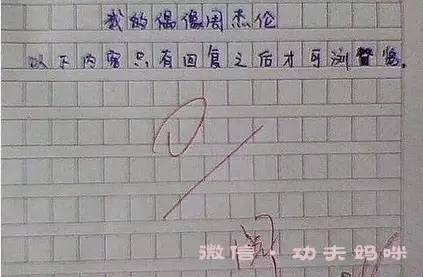 我的偶像周杰伦
以下内容只有回复之后才可浏览。
阅
微信 功夫妈咪